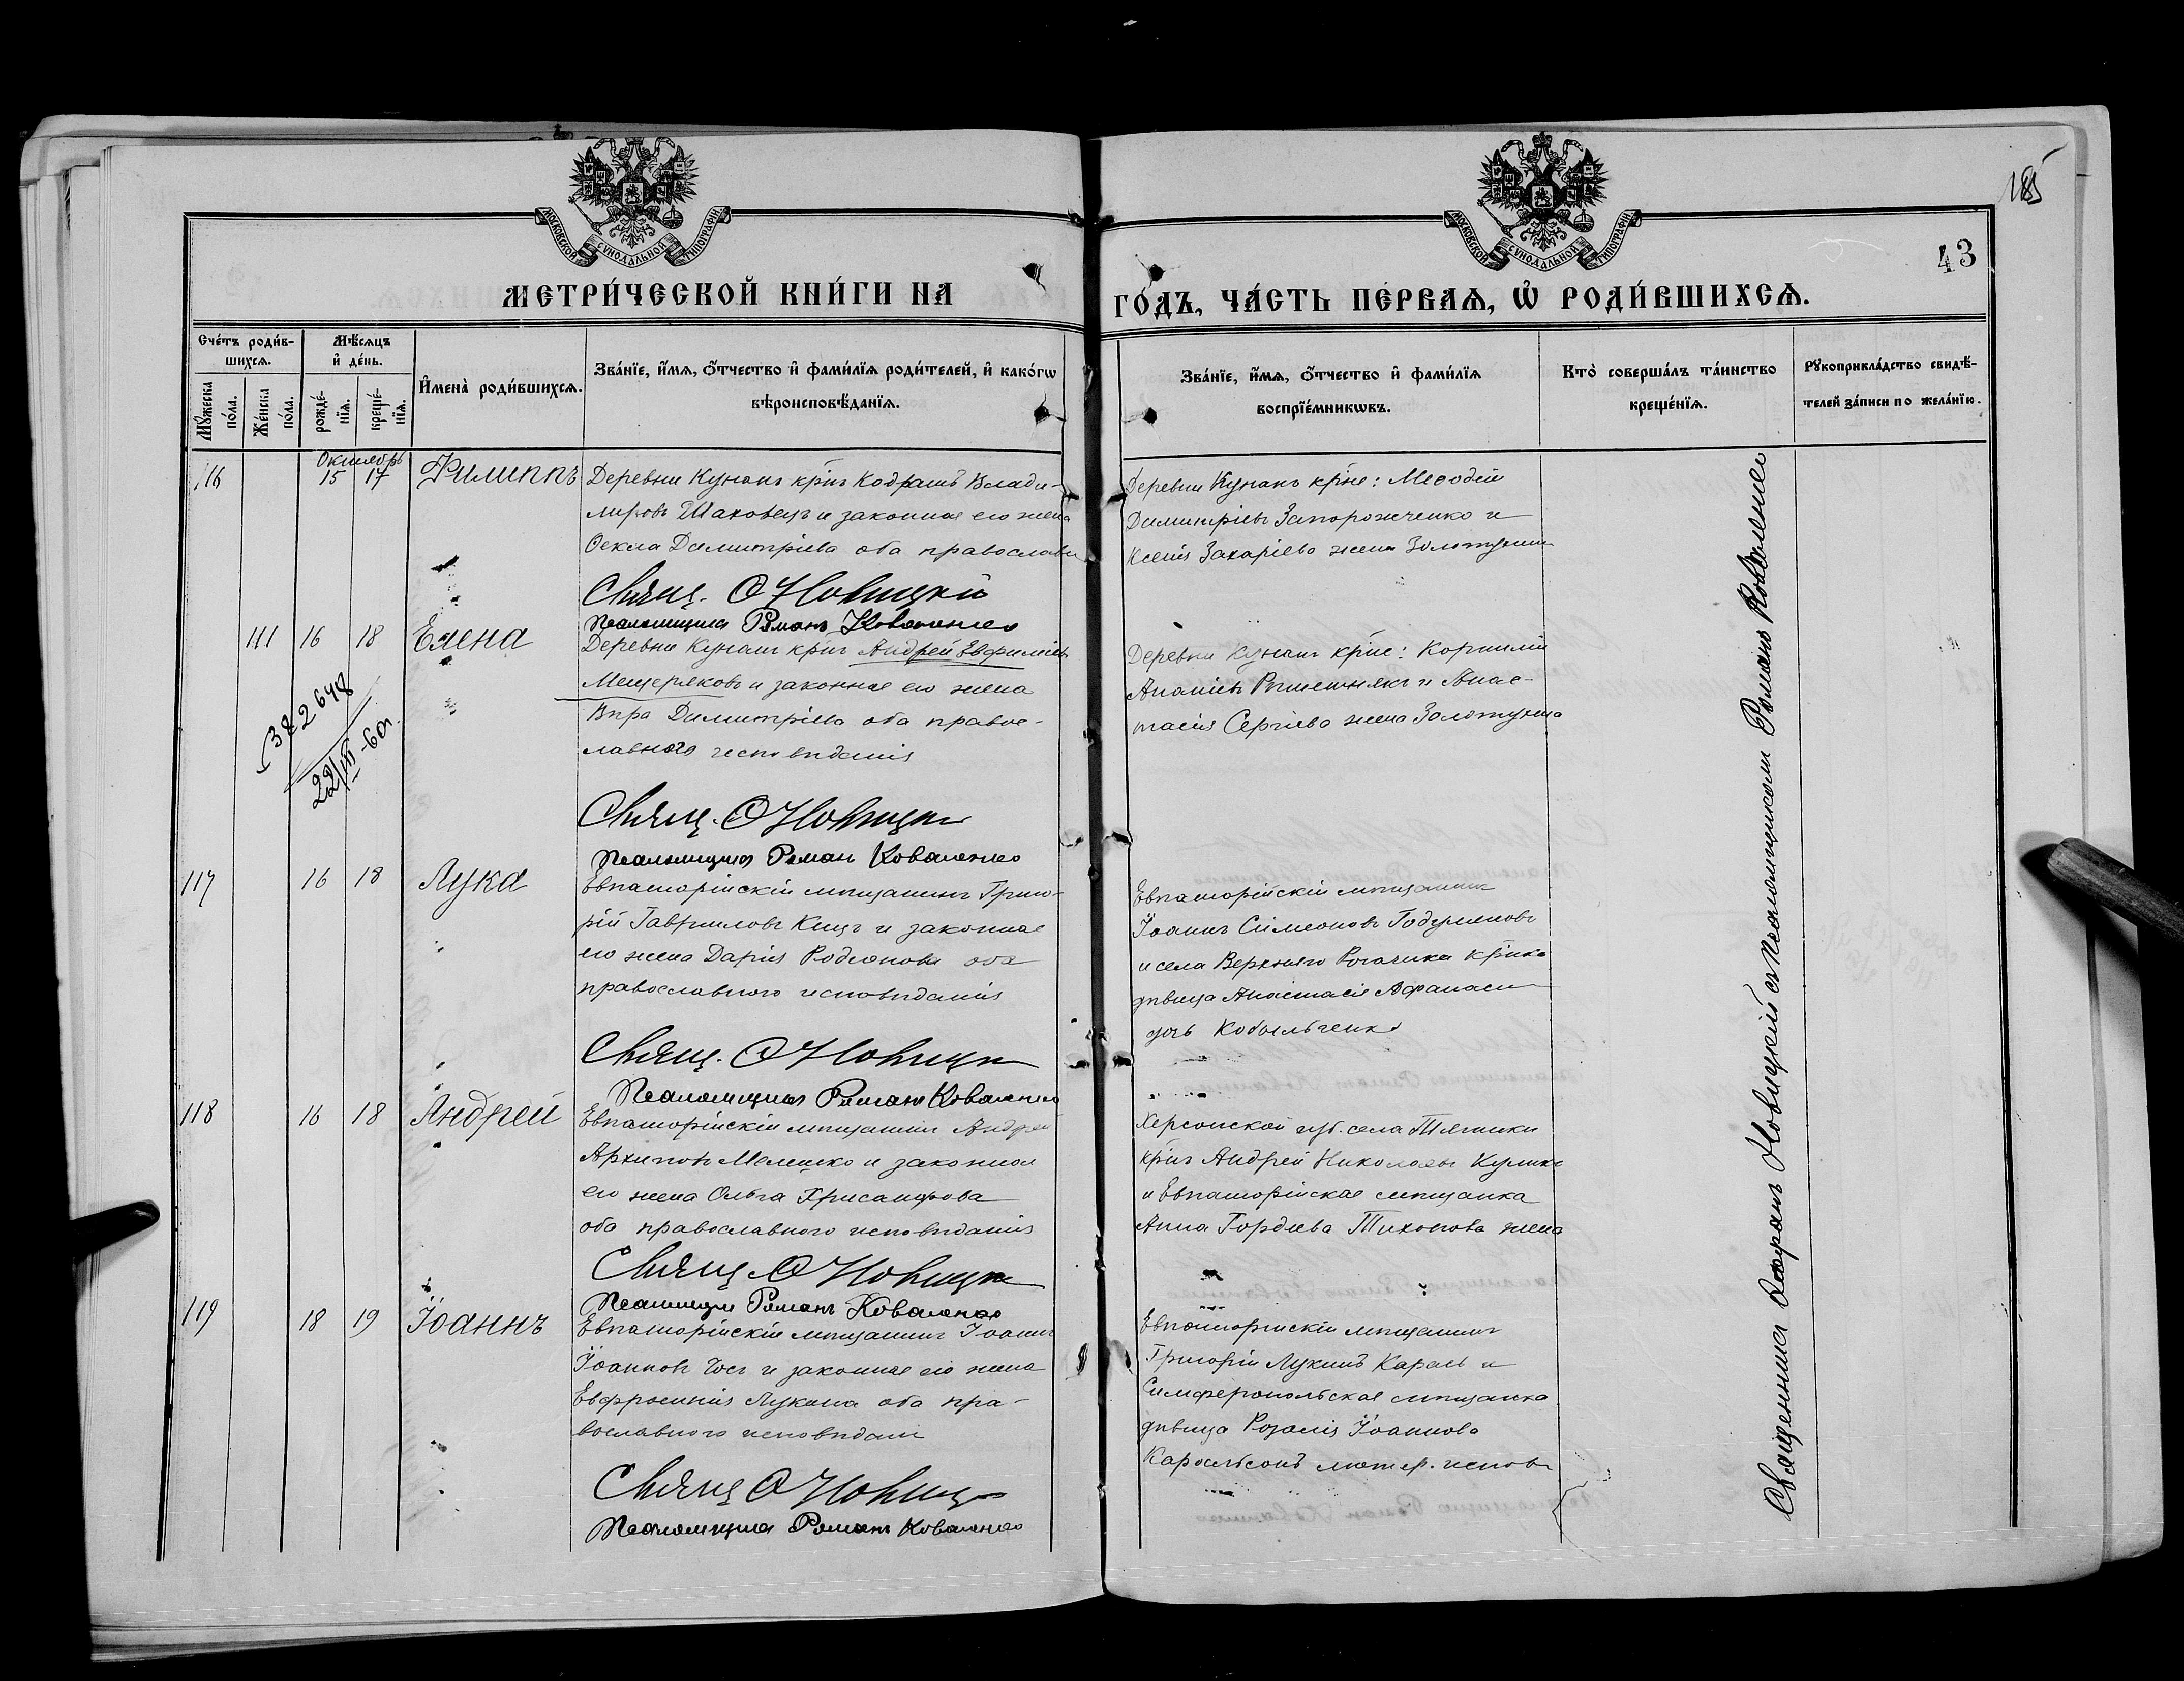 185
43
МОСКОВСКОЙ СѴНОДАЛЬНОЙ ТИПОГРАФІИ
МОСКОВСКОЙ СѴНОДАЛЬНОЙ ТИПОГРАФІИ
МЕТРИ́ЧЕСКОЙ КНИ́ГИ НА
ГО́ДЪ, ЧА́СТЬ ПЕ́РВАѦ, Ѡ҆ РОДИ́ВШИХСѦ.
Сче́тъ роди́в-
шихсѧ.
Мѣ́сѧцъ
и҆ де́нь.
Мꙋ́жеска
по́ла.
Же́нска
по́ла.
рожде́-
нїѧ.
креще́-
нїѧ.
И҆мена̀ роди́вшихсѧ.
Зва́нїе, и҆́мѧ, ѻ҆́тчество и҆ фами́лїѧ роди́телей, и҆ како́гѡ
вѣроисповѣ́данїѧ.
Зва́нїе, и҆́мѧ, ѻ҆́тчество и҆ фами́лїѧ
воспрїе́мникѡвъ.
Кто̀ соверша́лъ та́инство
креще́нїѧ.
Рꙋкоприкла́дство свидѣ́-
телей за́писи по жела́нїю.
Октябрь
116 15 17 Филиппъ
Деревни Кунанъ крнъ Кодратъ Влади-
мировъ Шаховецъ и законная его жена
Ѳекла Димитріева оба православн
Свящ. О Новицкій
Псаломщикъ Романъ Коваленко
Деревни Кунанъ крне: Меѳодій
Димитріевъ Запорожченко и
Ксенія Захаріева жена Золотухина
111 16 18 Елена
Деревни Кунанъ крнъ Андрей Евфиміевъ
Мещеряковъ и законная его жена
Вѣра Димитріева оба правос-
лавнаго исповѣданія
Свящ. О Новицкій
Псаломщикъ Романъ Коваленко
Деревни Кунанъ крне: Корнилій
Ананіевъ Рѣшетнякъ и Анас-
тасія Сергіева жена Золотухина
382648
22/III-60г.
117 16 18 Лука
Евпаторійскій мѣщанинъ Григо-
рій Гавриловъ Кицъ и законная
его жена Дарія Родіонова оба
православнаго исповѣданія
Свящ. О Новицкій
Псаломщикъ Романъ Коваленко
Евпаторійскій мѣщанинъ
Іоаннъ Симеоновъ
и села Верхняго Рогачика крнка
дѣвица Анастасія Афанасі
дочь Кобыльченко
118 16 18 Андрей
Евпаторійскій мѣщанинъ Андрей
Архиповъ Мелешко и законная
его жена Ольга Хрисанфова
оба православнаго исповѣданія
Свящ. О Новицкій
Псаломщикъ Романъ Коваленко
Херсонской губ. села Тягинки
крнъ Андрей Николаевъ Куликъ
и Евпаторійская мѣщанка
Анна Гордіева Тихонова жена
119 18 19 Іоаннъ
Евпаторійскій мѣщанинъ Іоаннъ
Іоанновъ и законная его жена
Евфросинія Лукина оба пра-
вославнаго исповѣданія
Свящ О Новицкій
Псаломщикъ Романъ Коваленко
Евпаторійскій мѣщанинъ
Григорій Лукинъ Карась и
Симферопольская мѣщанка
дѣвица Розалія Іоаннова
Карольсонъ лютер. испов
Священникъ Новицкій съ псаломщикомъ Романъ Коваленко